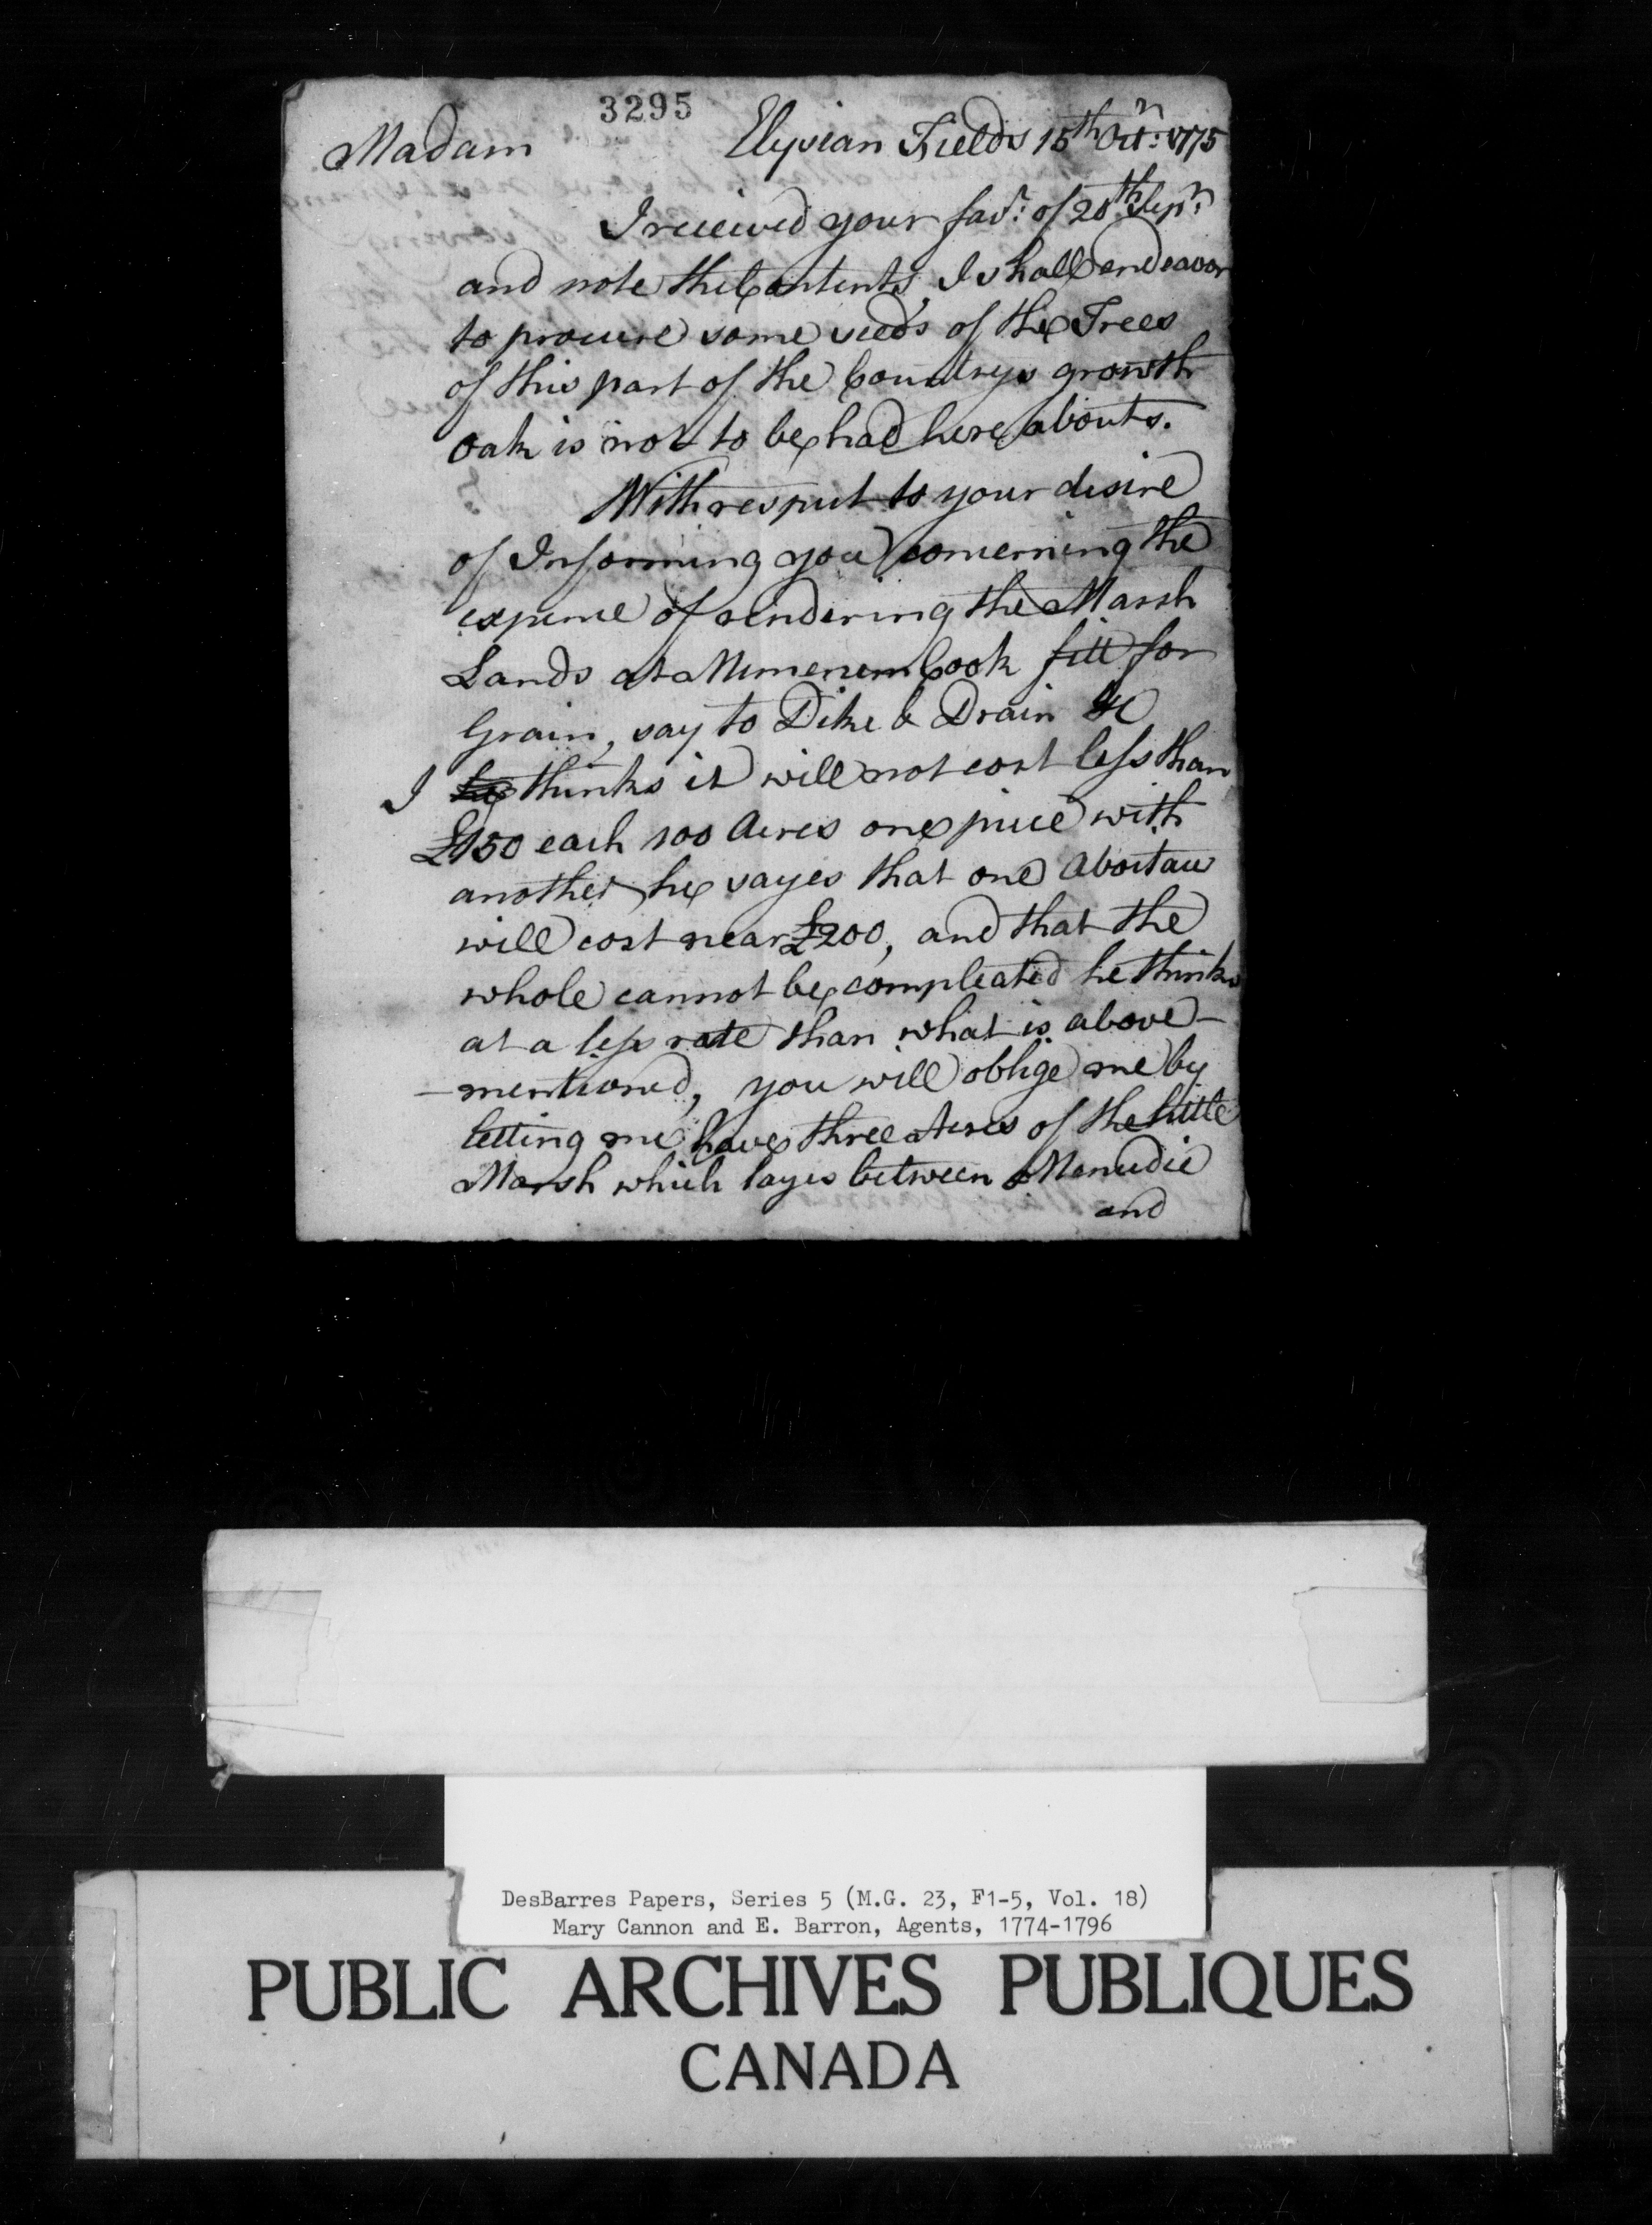 3295
Madam Elysian Fields 15th Octr: 1775
I received your favr: of 20th Sepr:
and note the Contents, I shall endeavor
to procure some seeds of the Trees
of this part of the Countrys growth
Oak is not to be had here abouts.
With respect to your desire
of Informing you concerning the
expence of rendering the Marsh
Lands at Memenemcook fitt for
Grain, say to Dike & Drain &c
I he thinks it will not cost less than
£150 each 100 Acres one piece with
another, he sayes that one Aboitau
will cost near £200, and that the
whole cannot be compleated he thinks
at a less rate than what is above-
-mentioned, you will oblige me by
letting me have three Acres of the little
Marsh which layes between Menudie
and
DesBarres Papers, Series 5 (M.G. 23, F1-5, Vol. 18)
Mary Cannon and E. Barron, Agents, 1774-1796
PUBLIC ARCHIVES PUBLIQUES
CANADA